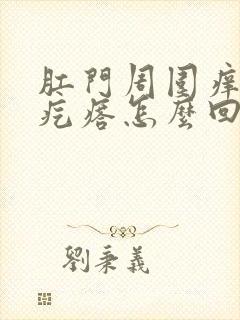 肛門周圍癢
疙瘩怎麼回
劉秉義